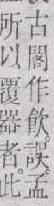 古閣作飲誤孟
所以覆器者此